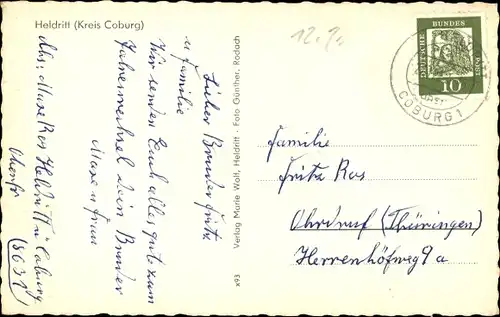 Heldritt (Kreis Coburg)
12.
DEUTSCHE BUNDESPOST
10
COBURG 1
Lieber Bruder Fritz
u familie
Wir senden Euch alles gute zum
Jahreswechsel Dein Bruder
Max u Frau
Abs. Max Ros Heldritt ü Coburg
(8631)
Verlag Marie Wolf, Heldritt - Foto Günther, Rodach
x93
Familie
Fritz Ros
Ohrdruf (Thüringen)
Herrenhöfweg 9 a